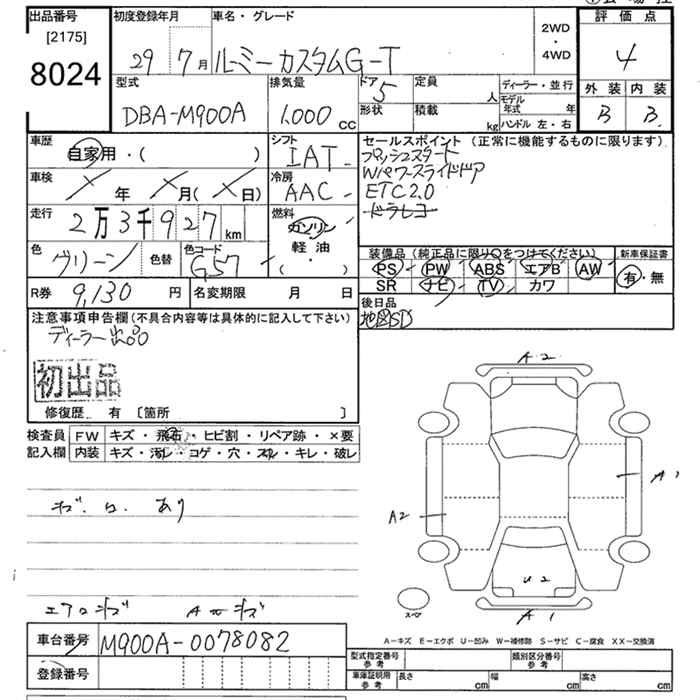 出品番号
[2175]
8024
初度登録年月
29 7月
車名・グレード
ルーミーカスタムG-T
2WD
・
4WD
評価点
4
型式
DBA-M900A
排気量
1,000 cc
ドア 5
形状
定員 人
積載 kg
ディーラー・並行
モデル年式 年
ハンドル 左・右
外装 内装
B B
車歴
自家用・( )
シフト
IAT
セールスポイント(正常に機能するものに限ります)
プッシュスタート
Wパワースライドドア
ETC2.0
ドラレコ
車検
年 月( 日)
冷房
AAC
走行
2万3千927km
燃料
ガソリン
軽・油
・( )
色
グリーン
色替
色コード
G57
装備品(純正品に限り○をつけてください)
PS PW ABS エアB AW
SR ナビ TV カワ
新車保証書
有・無
R券 9,130 円
名変期限 月 日
後日品
地図SD
注意事項申告欄(不具合内容等は具体的に記入して下さい)
ディーラー出品
初出品
修復歴 有 [箇所 ]
検査員
記入欄
FW キズ・飛石・ヒビ割・リペア跡・×要
内装 キズ・汚レ・コゲ・穴・スレ・キレ・破レ
A2
A1
A2
U2
A1
スペア
A-キズ E-エクボ U-凹み W-補修跡 S-サビ C-腐食 XX-交換済
車台番号 M900A-0078082
登録番号
型式指定番号
参考
類別区分番号
参考
車庫証明用
参考
長さ cm
幅 cm
高さ cm